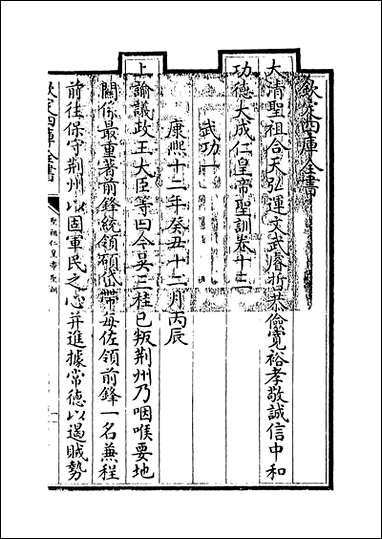 欽定四庫全書
大清聖祖合天弘運文武睿哲恭儉寛裕孝敬誠信中和
功德大成仁皇帝聖訓卷十三
武功一
康熙十二年癸丑十二月丙辰
上諭議政王大臣等曰今吳三桂已叛荆州乃咽喉要地
關係最重著前鋒統領碩岱帶每佐領前鋒一名兼程
前往保守荆州以固軍民之心并進據常德以遏賊勢
欽定四庫全書
聖祖仁皇帝聖訓